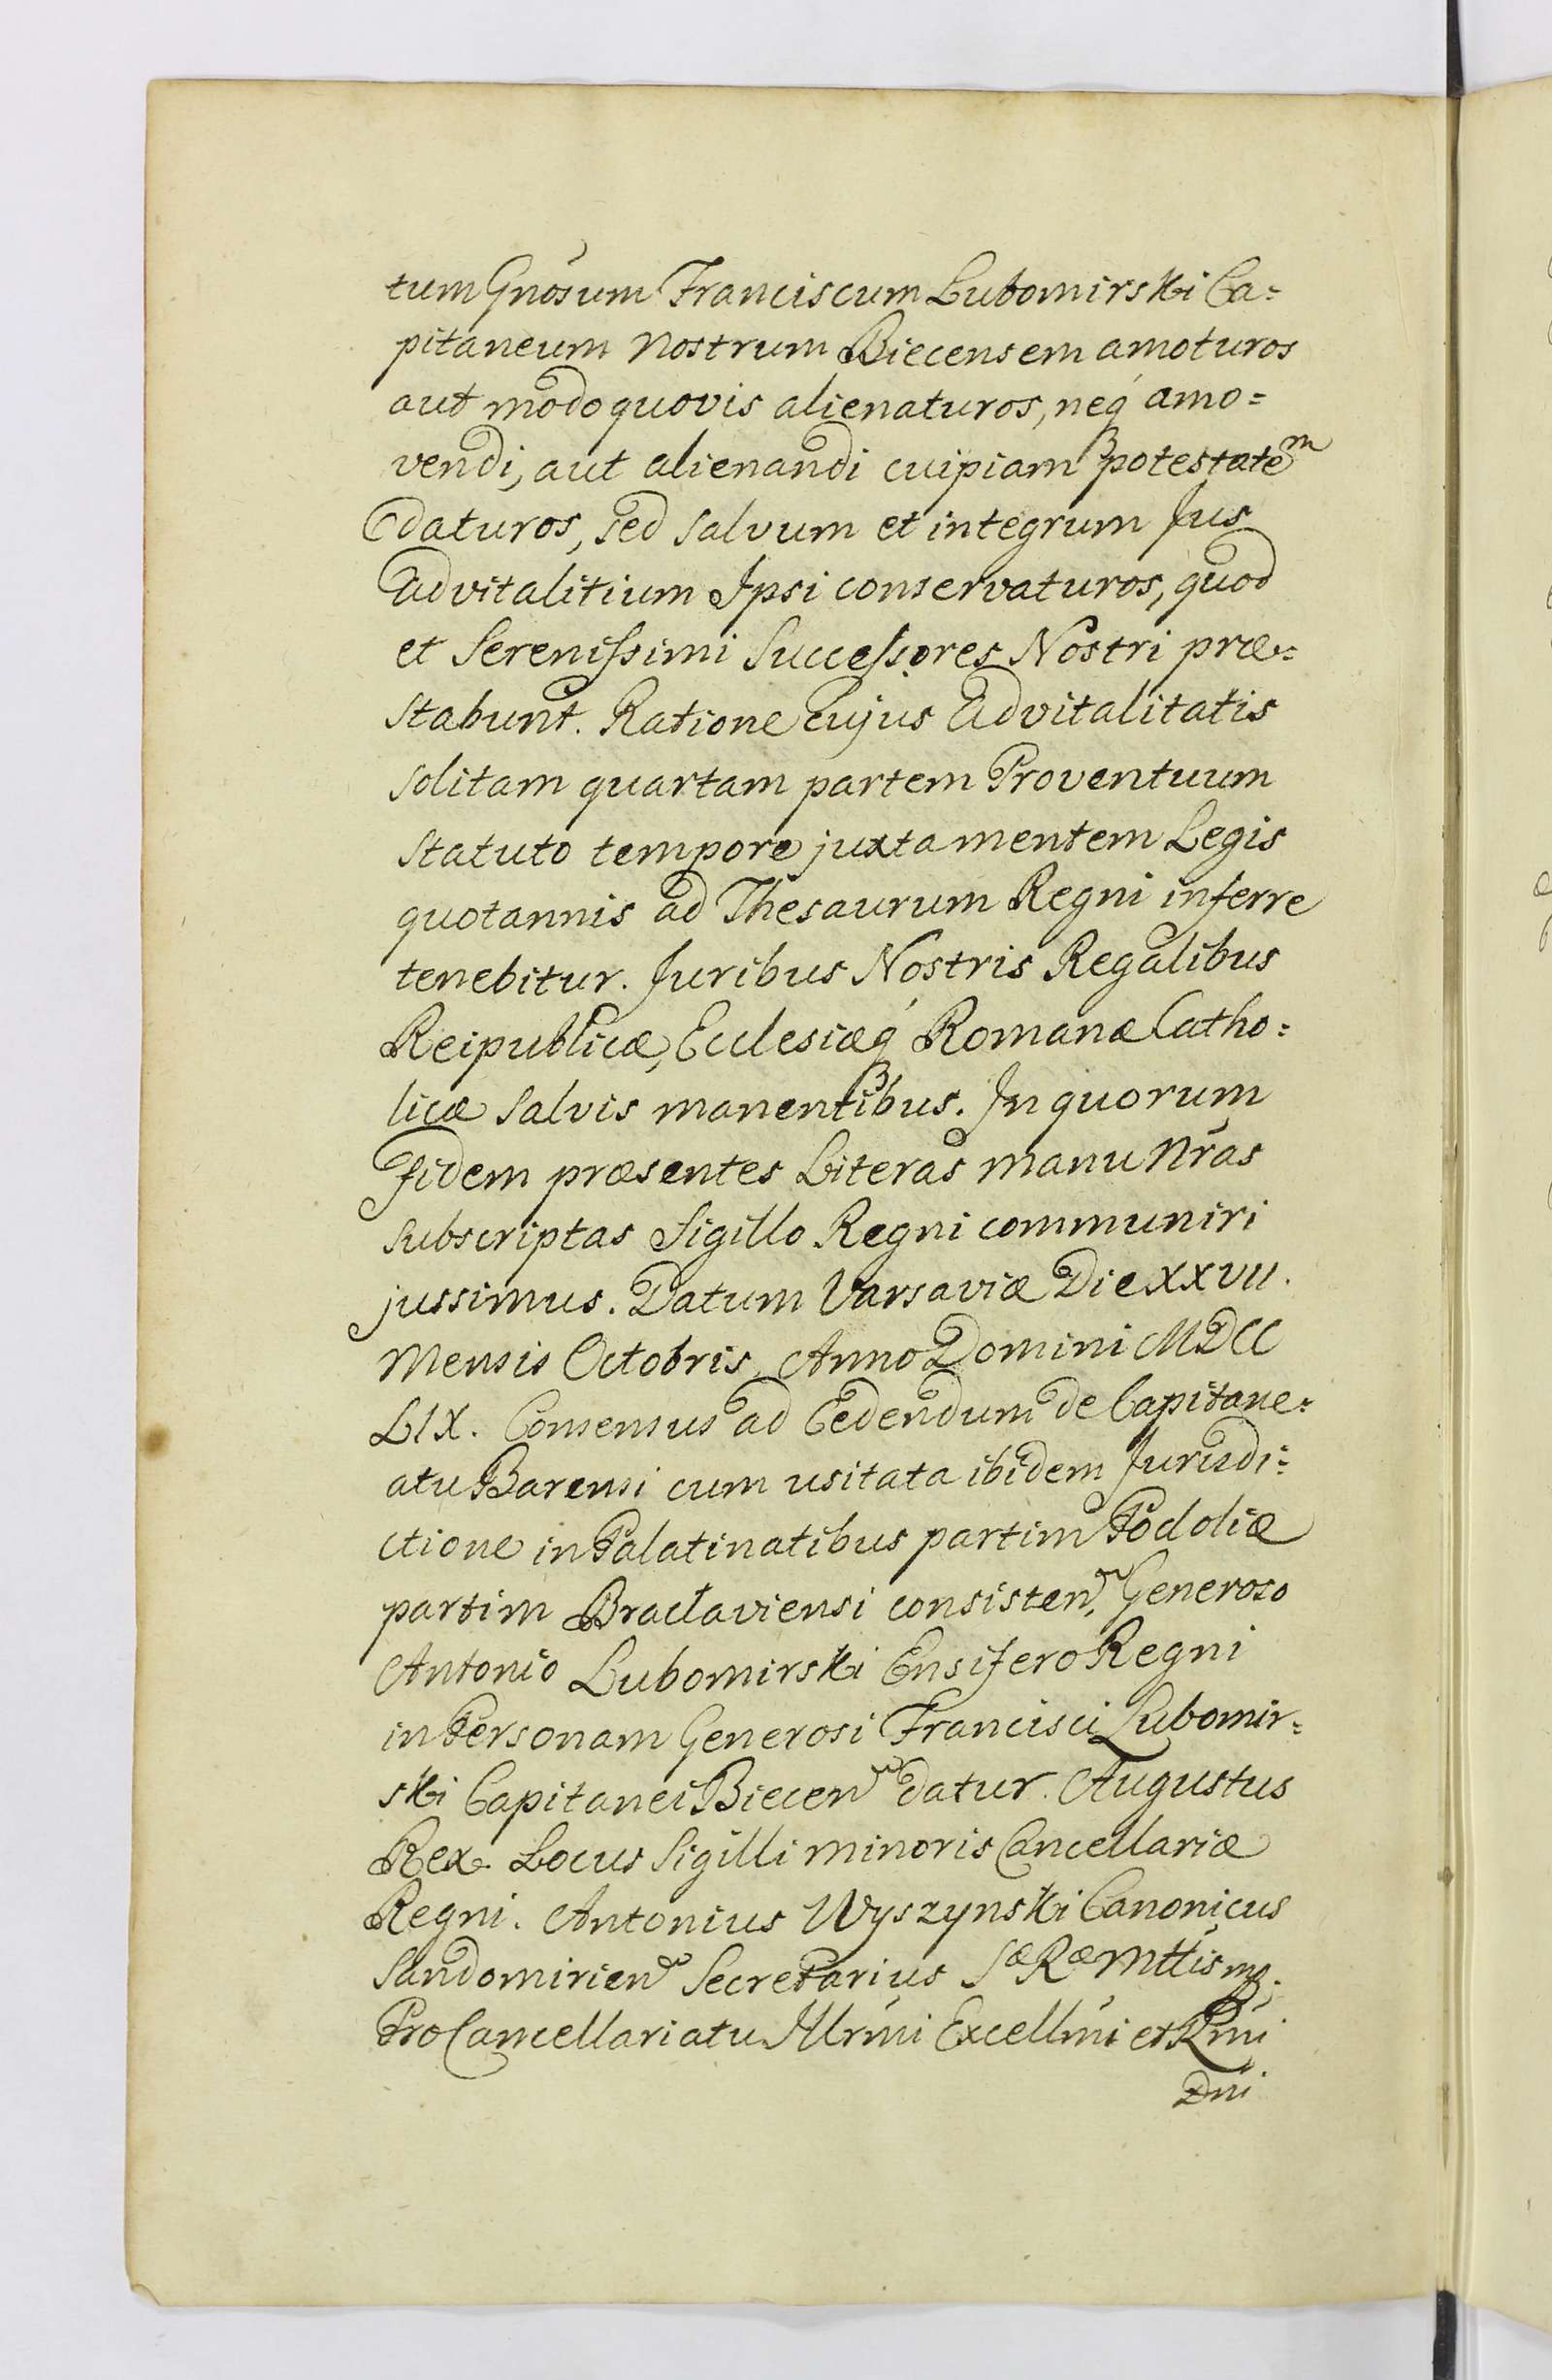 tum Gnosum Franciscum Lubomirski Ca=
pitaneum Nostrum Biecensem amoturos
aut modo quovis alienaturos, neq́ amo=
vendi, aut alienandi cuipiam potestatem
daturos, sed salvum et integrum Jus
Advitalitium Ipsi conservaturos, quod
et Serenissimi Successores Nostri præ=
stabunt. Ratione cujus Advitalitatis
solitam quartam partem Proventuum
statuto tempore juxta mentem Legis
quotannis ad Thesaurum Regni inferre
tenebitur. Juribus Nostris Regalibus
Reipublicæ, Ecclesiæq́ Romanæ Catho=
licæ salvis manentibus. In quorum
fidem præsentes Literas manu Nras
subscriptas Sigillo Regni communiri
jussimus. Datum Varsaviæ Die XXVII.
Mensis Octobris, Anno Domini MDCC
LIX. Consensus ad Cedendum de Capitane=
atu Barensi cum usitata ibidem Jurisdi=
ctione in Palatinatibus partim Podoliæ
partim Braclaviensi consisten. Generoso
Antonio Lubomirski Ensifero Regni
in Personam Generosi Francisci Lubomir=
ski Capitanei Biecen datur. Augustus
Rex. Locus Sigilli minoris Cancellariæ
Regni. Antonius Wyszynski Canonicus
Sandomirien Secretarius Sæ Ræ Mttis mp.
Pro Cancellariatu Illrmi Excellmi et Rmi
Dni